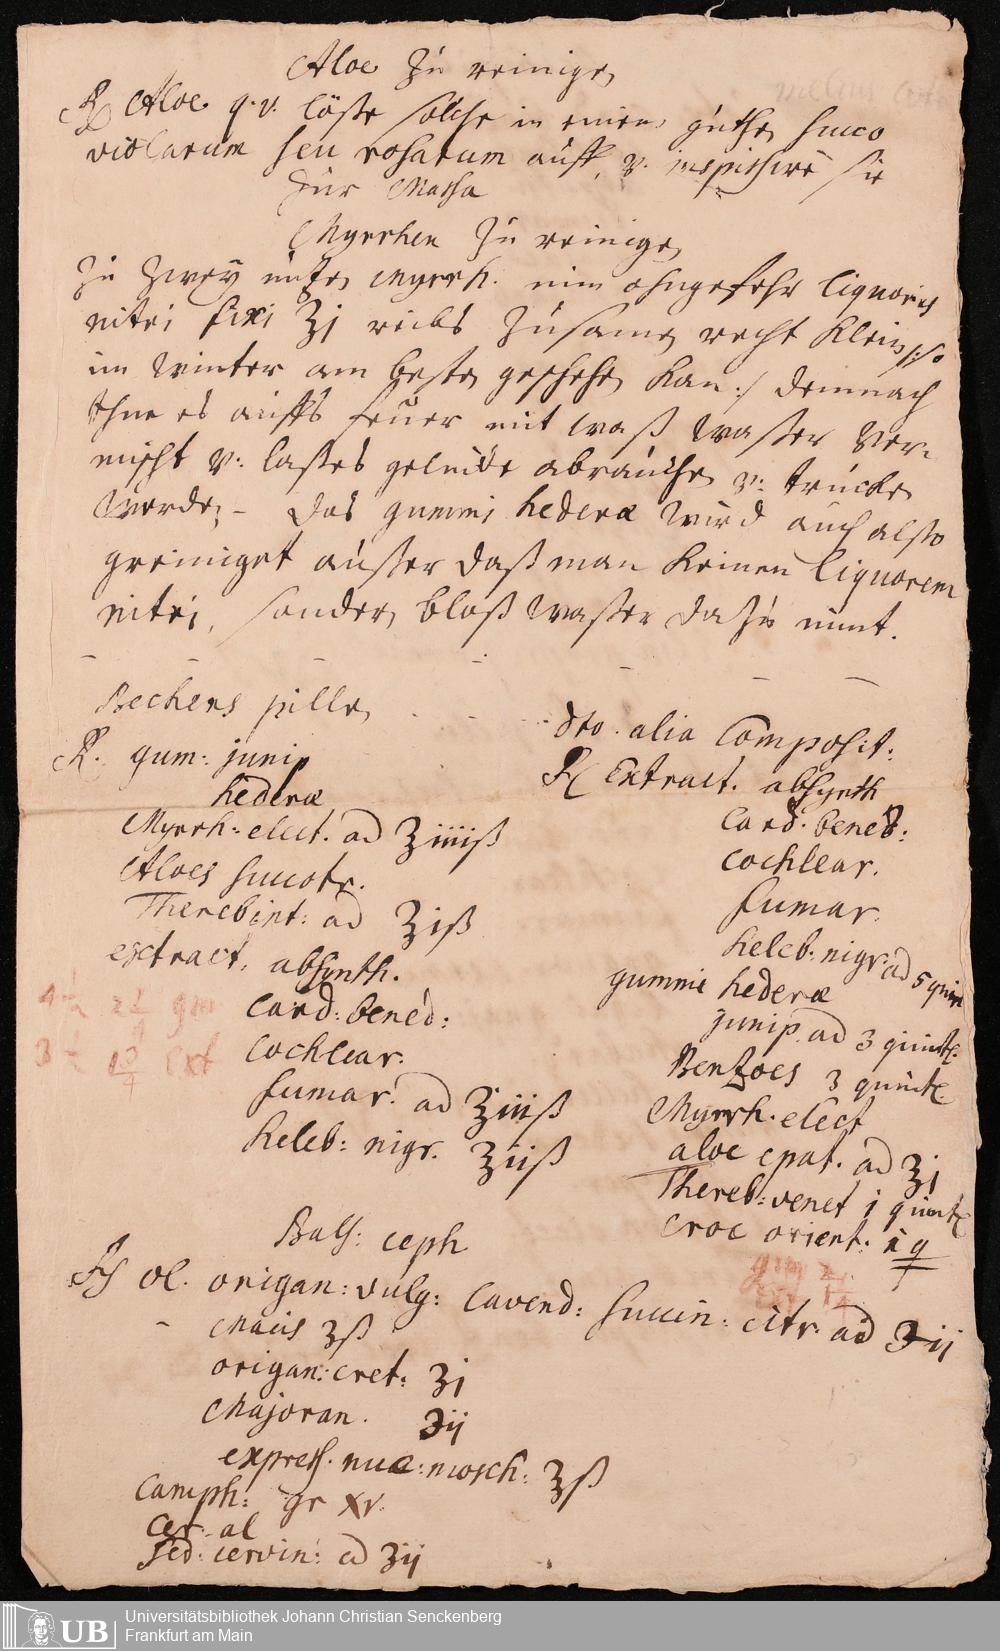 Aloe zu reinigen
Rx Aloe q. v. löße solche in einem guthen succo
violarum seu rosarum auff, v. inspissire sie
zur Massa
Myrrhen zu reinigen
Zu zwey untzen myrrh. nim ohngefehr liquoris
nitri fixi ℥j reibs zusamen recht klein /: so
im Winter am besten geschehen kan :/ demnach
thue es auffs feuer mit waß waßer ver-
mischt v: laßes gelinde abrauchen v: trucken
werden - Das gummi hederæ wird auch also
gereiniget außer daß man keinen liquorem
nitri, sondern bloß waßer dazu nimt.
Bechers pillen
Rx. gum: junip
hederæ
Myrrh: elect. ad ℥iiiß
Aloes succotr.
Therebint: ad ℥iß
extract. absynth.
Card: bened:
Cochlear.
fumar. ad ℥iiß
heleb: nigr. ℥iiß
dto. alia Composit:
Rx Extract. absynth
Card. bened:
Cochlear.
fumar.
heleb: nigr. ad 5 quint
gummi hederæ
junip. ad 3 quintl.
Benzoes 3 quintl.
Myrrh. elect
aloe epat. ad ℥j
Thereb: venet 1 quintl
croc orient. 1 q
gum 2
Ext 1
Bals: ceph
Rx ol. origan: vulg: Lavend: succin: citr. ad ʒij
Macis ʒß
origan: cret: ʒj
Majoran. ʒij
express. nuc: mosch: ʒß
Camph: gr xv.
Cer. al
sed: cervin: ad ʒij
Universitätsbibliothek Johann Christian Senckenberg
Frankfurt am Main
UB